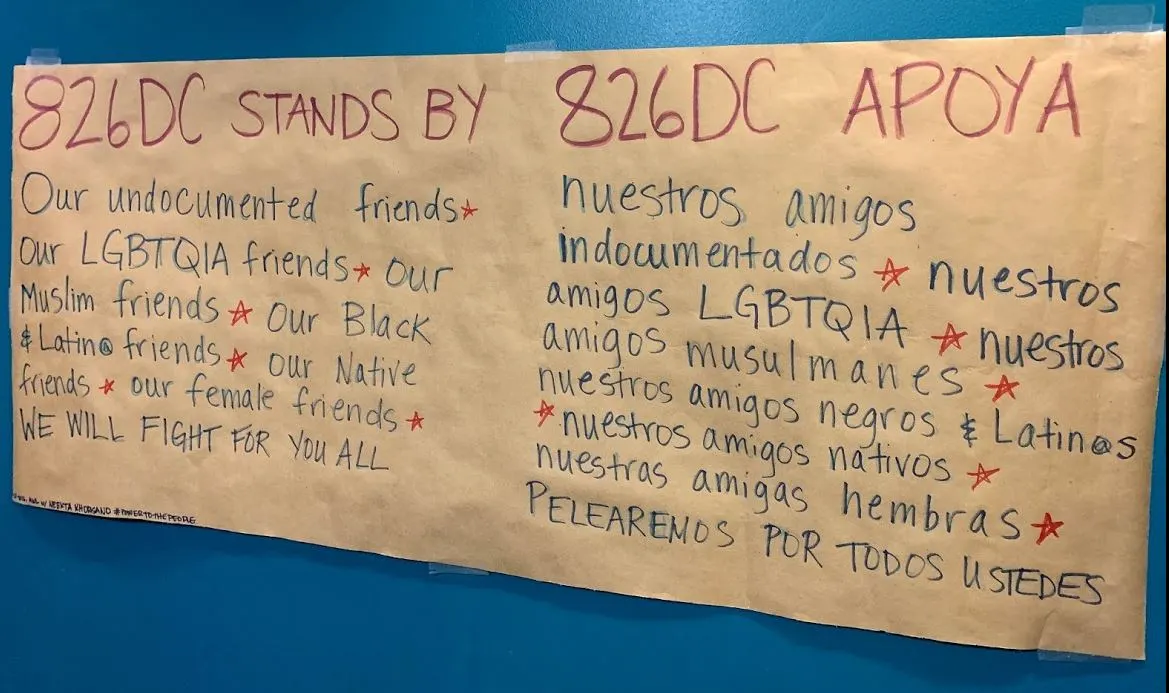 826DC STANDS BY
Our undocumented friends★
our LGBTQIA friends★ our
Muslim friends ★ Our Black
& Latin@ friends★ our Native
friends ★ our female friends ★
WE WILL FIGHT FOR YOU ALL
W/ NEEKTA KHORSAND #POWERTOTHEPEOPLE
826DC APOYA
nuestros amigos
indocumentados ★ nuestros
amigos LGBTQIA ★ nuestros
amigos musulmanes ★
nuestros amigos negros & Latin@s
★ nuestros amigos nativos ★
nuestras amigas hembras ★
PELEAREMOS POR TODOS USTEDES